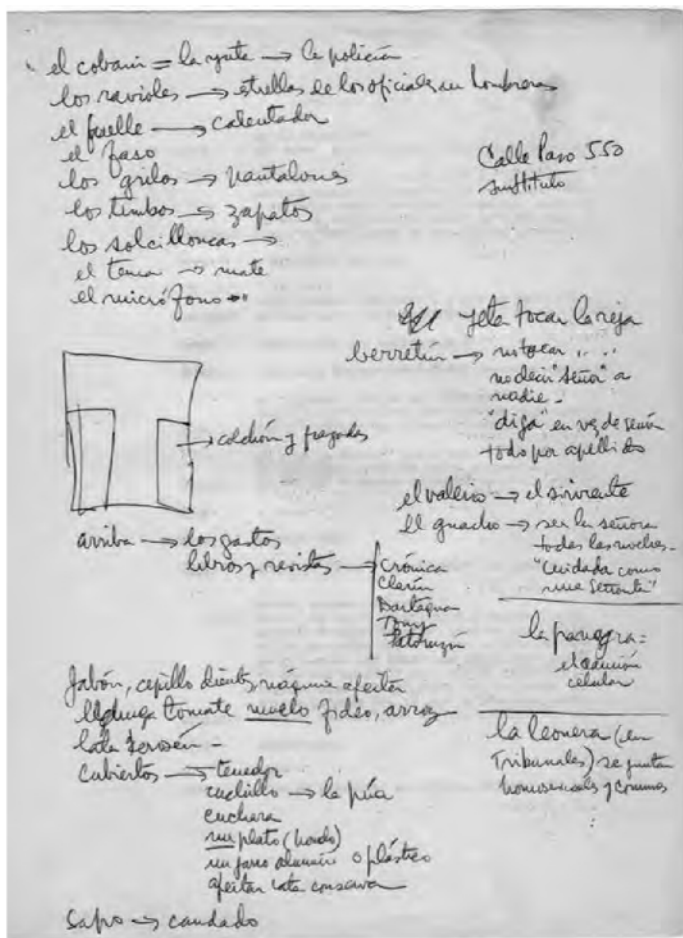 el cobani = la yuta → la policía
los ravioles → estrellas de los oficiales en hombreras
el fuelle → calentador
el faso
los grilos → pantalones
los timbos → zapatos
los solcilloncas →
el tena → mate
el micrófono →
Calle Paso 550
instituto
yeta tocar la reja
berretín → no tocar " "
no decir "señor" a
nadie -
"diga" en vez de señor
todo por apellido
→ colchón y frezadas
el valerio → el sirviente
el guacho → ser la señora
todas las noches -
"Cuidada como
una señorita"
arriba → los gastos
libros y revistas → Crónica
Clarín
Dartagnan
Tony
Patoruzú
la :
el camión
celular
Jabón, cepillo dientes, máquina afeitar
lechuga tomate fideo, arroz
lata kerosén -
la leonera (en
Tribunales) se juntan
homosexuales y comunes
Cubiertos → tenedor
cuchillo → la púa
cuchara
un plato (hondo)
un jarro aluminio o plástico
afeitar lata conserva
Sapo → candado